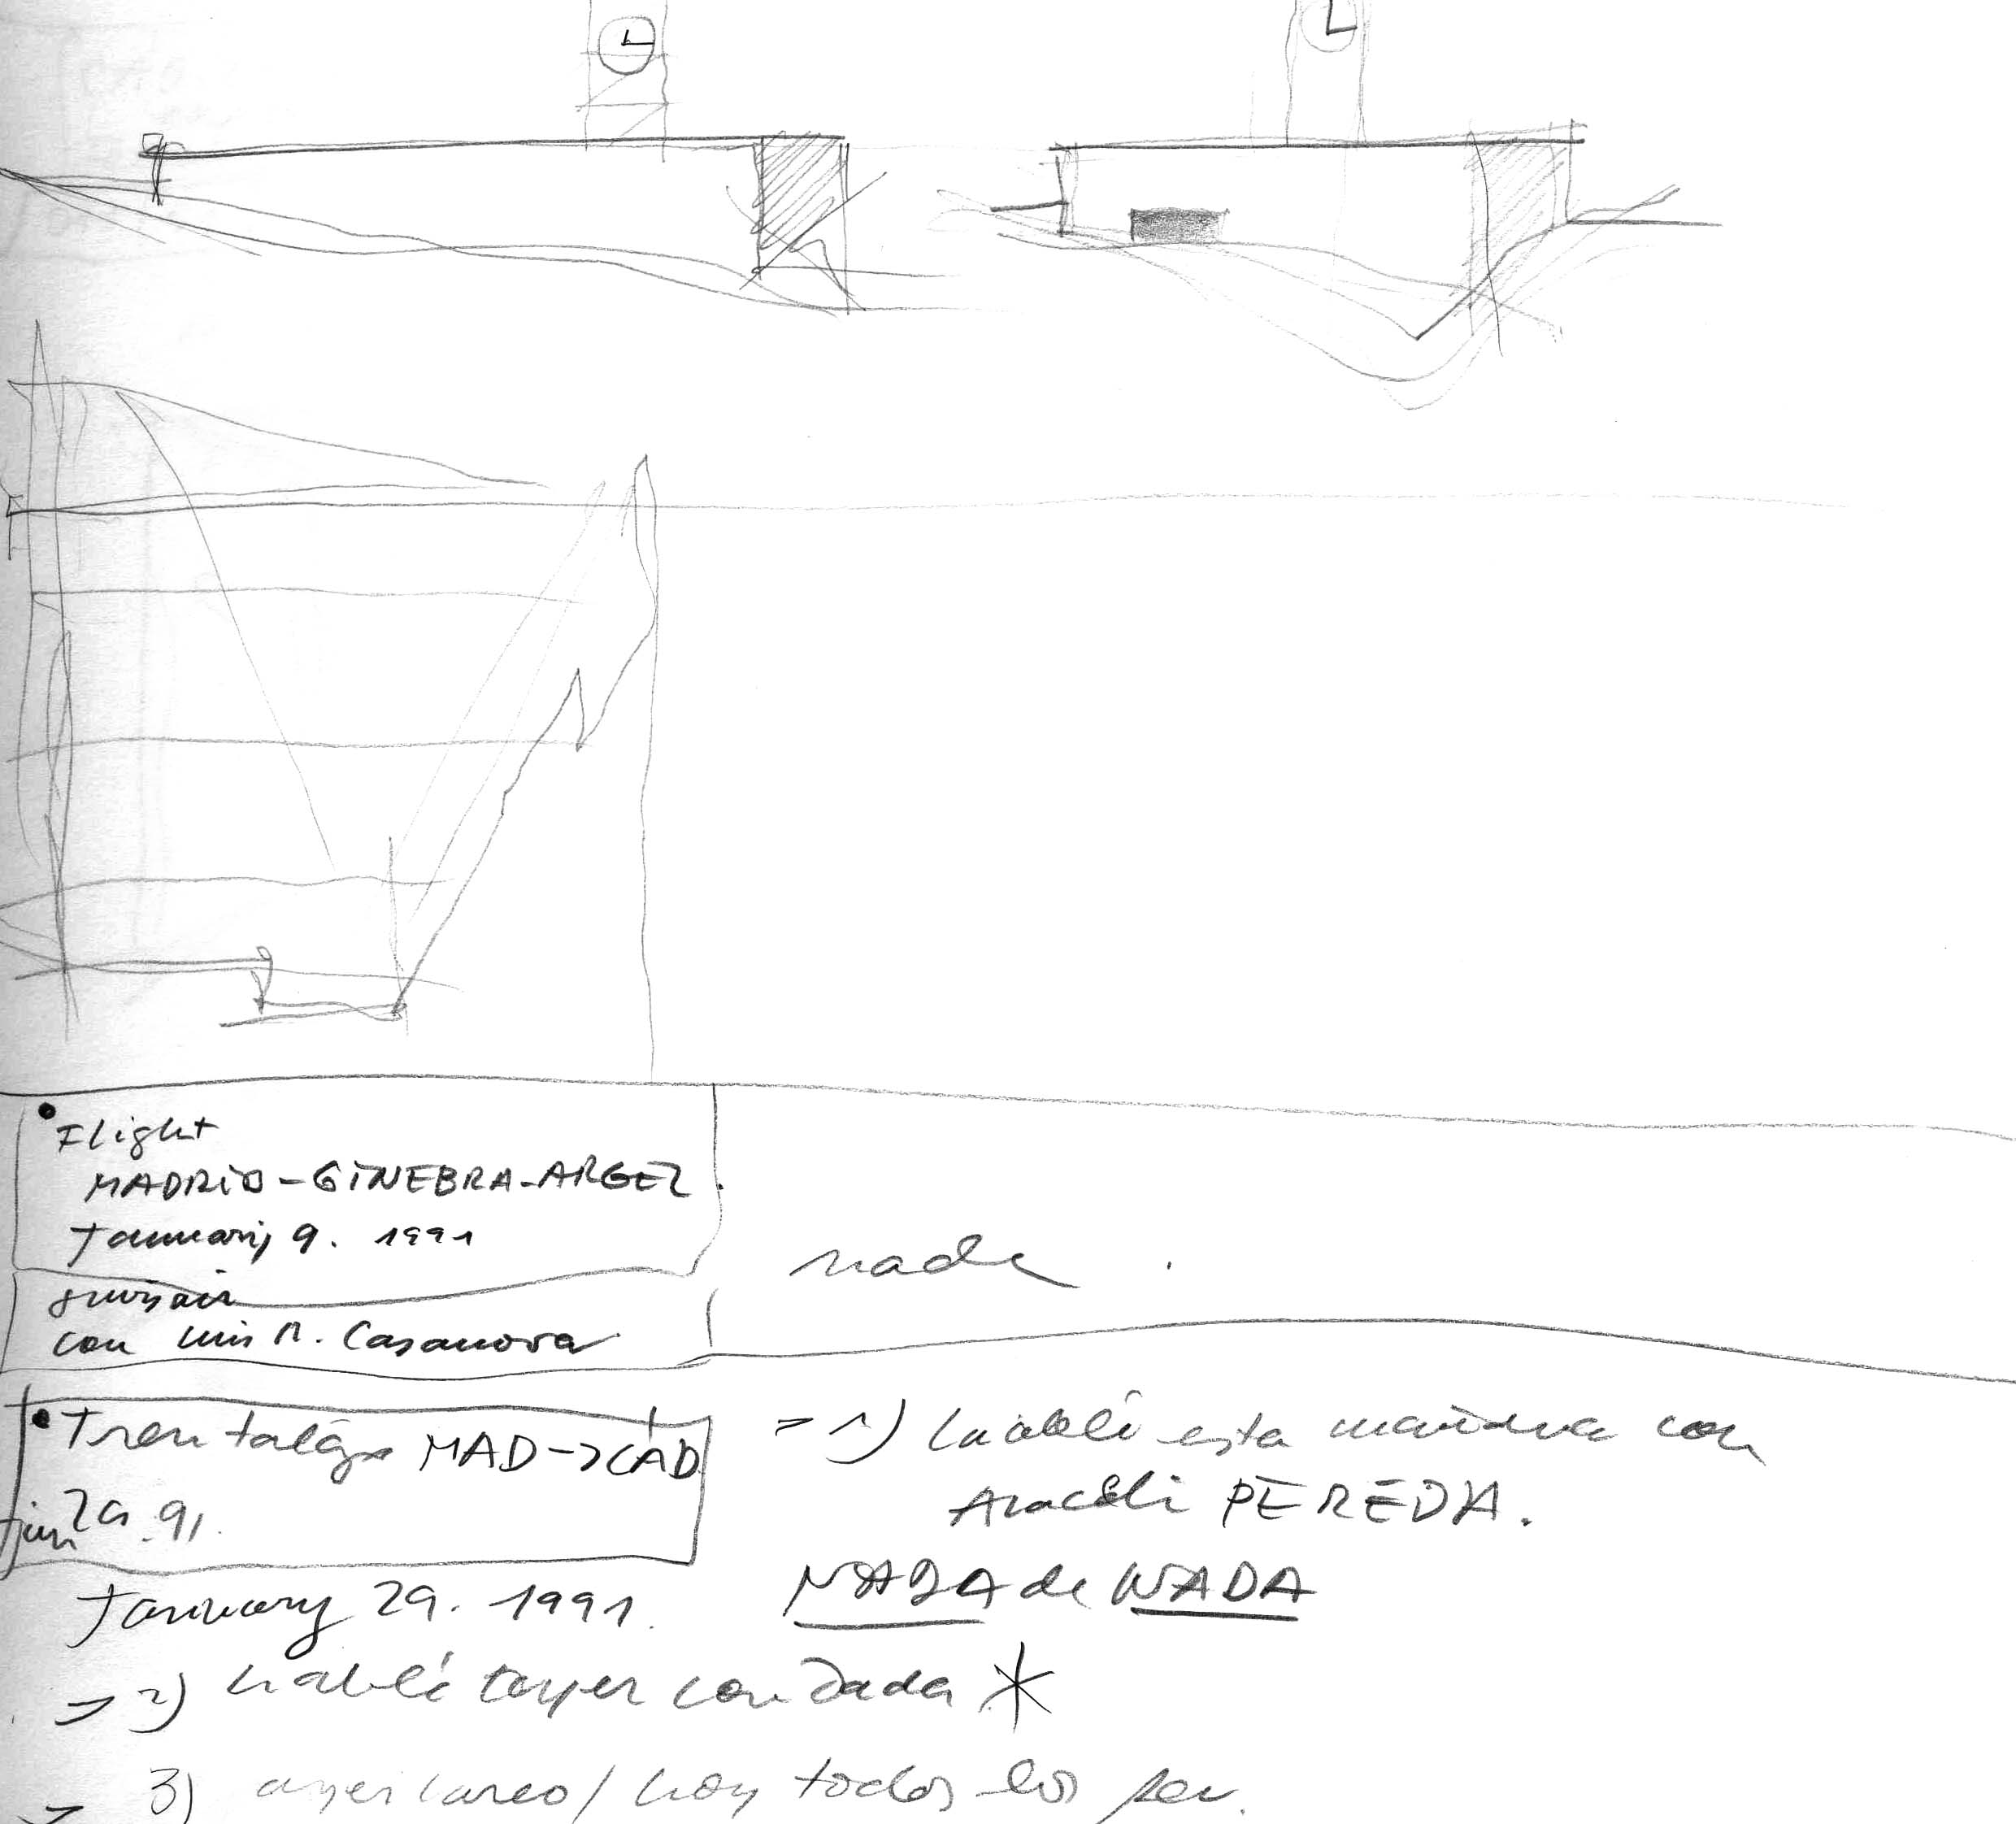 Flight
MADRID-GINEBRA-ARGEL.
January 9. 1991
swissair
con Luis R. Casanova
nada.
Tren talgo MAD->CAD
Jan 29.91.
=> 1) hablé esta mañana con
Araceli PEREDA.
January 29. 1991.
NADA de NADA
=> 2) hablé ayer con Dada *
=> 3) ayer / hoy todos los